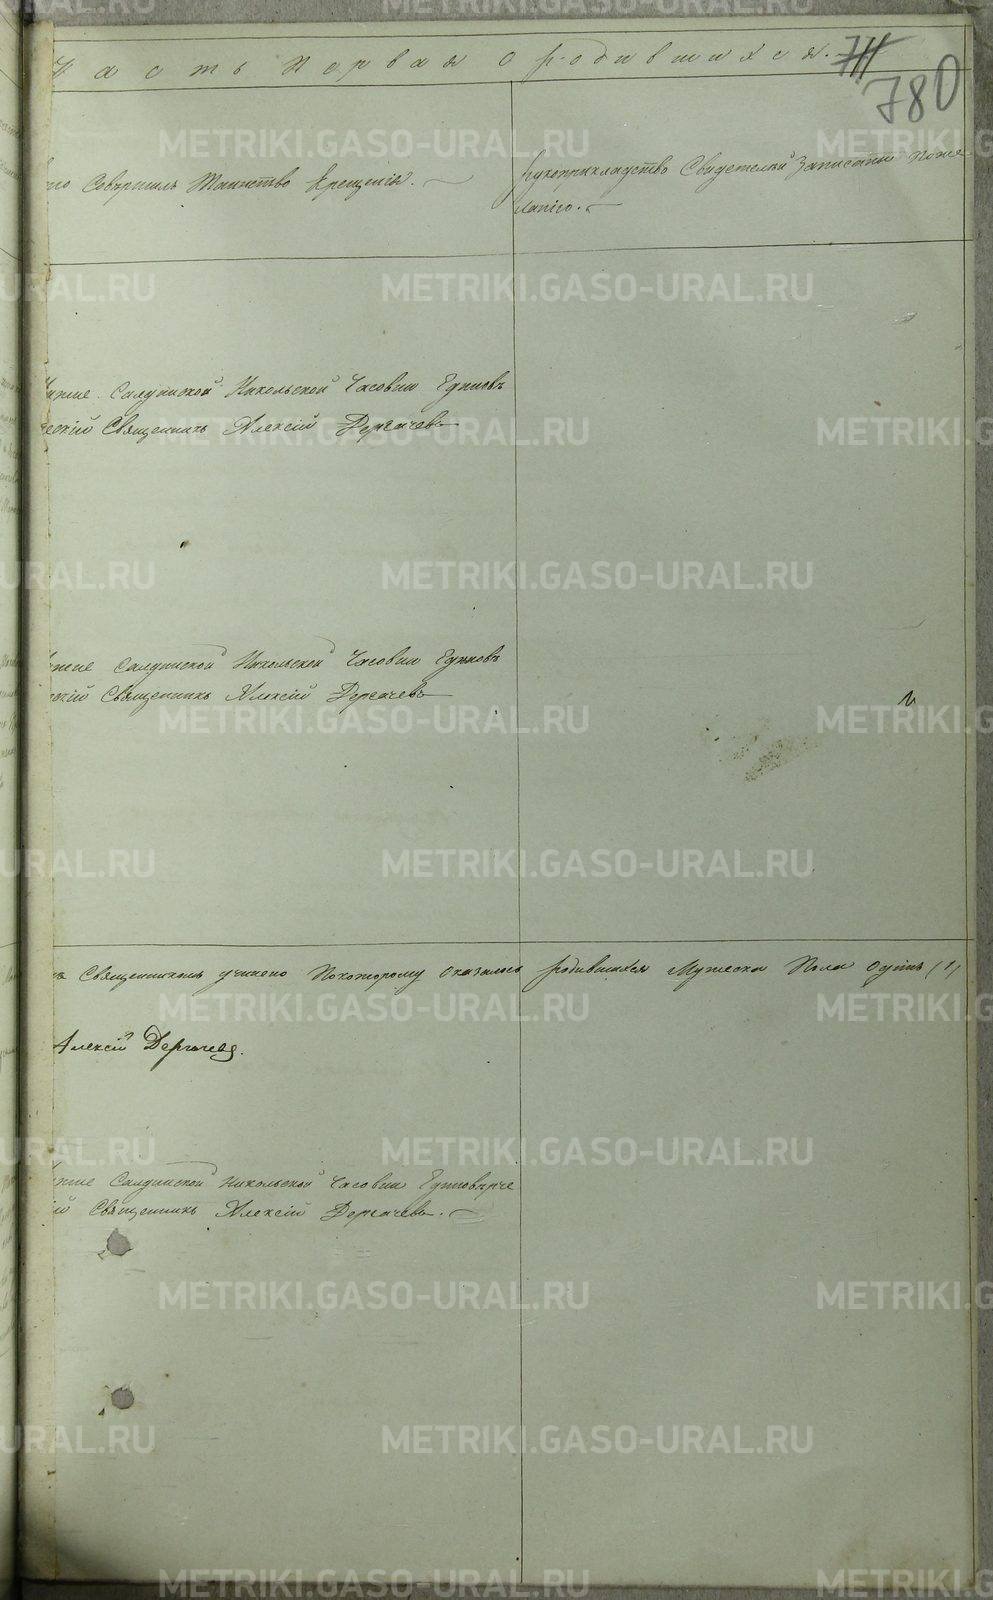 Часть Первая О родившихся. 711
780
Кто Совершилъ Таинство Крещенія.
Рукоприкладство Свидетелей Записи По же
ланію.
Нижне Салдинской Никольской Часовни Единовѣ
ческій Священникъ Алексій Дергачевъ
Нижне Салдинской Никольской Часовни Единовѣ
ческій Священникъ Алексій Дергачевъ
Священникомъ учинено По которому оказалось родившихся Мужеска Пола Одинъ (1)
Алексій Дергачевъ.
Нижне Салдинской Никольской Часовни Единовѣрче
скій Священникъ Алексій Дергачевъ.
METRIKI.GASO-URAL.RU